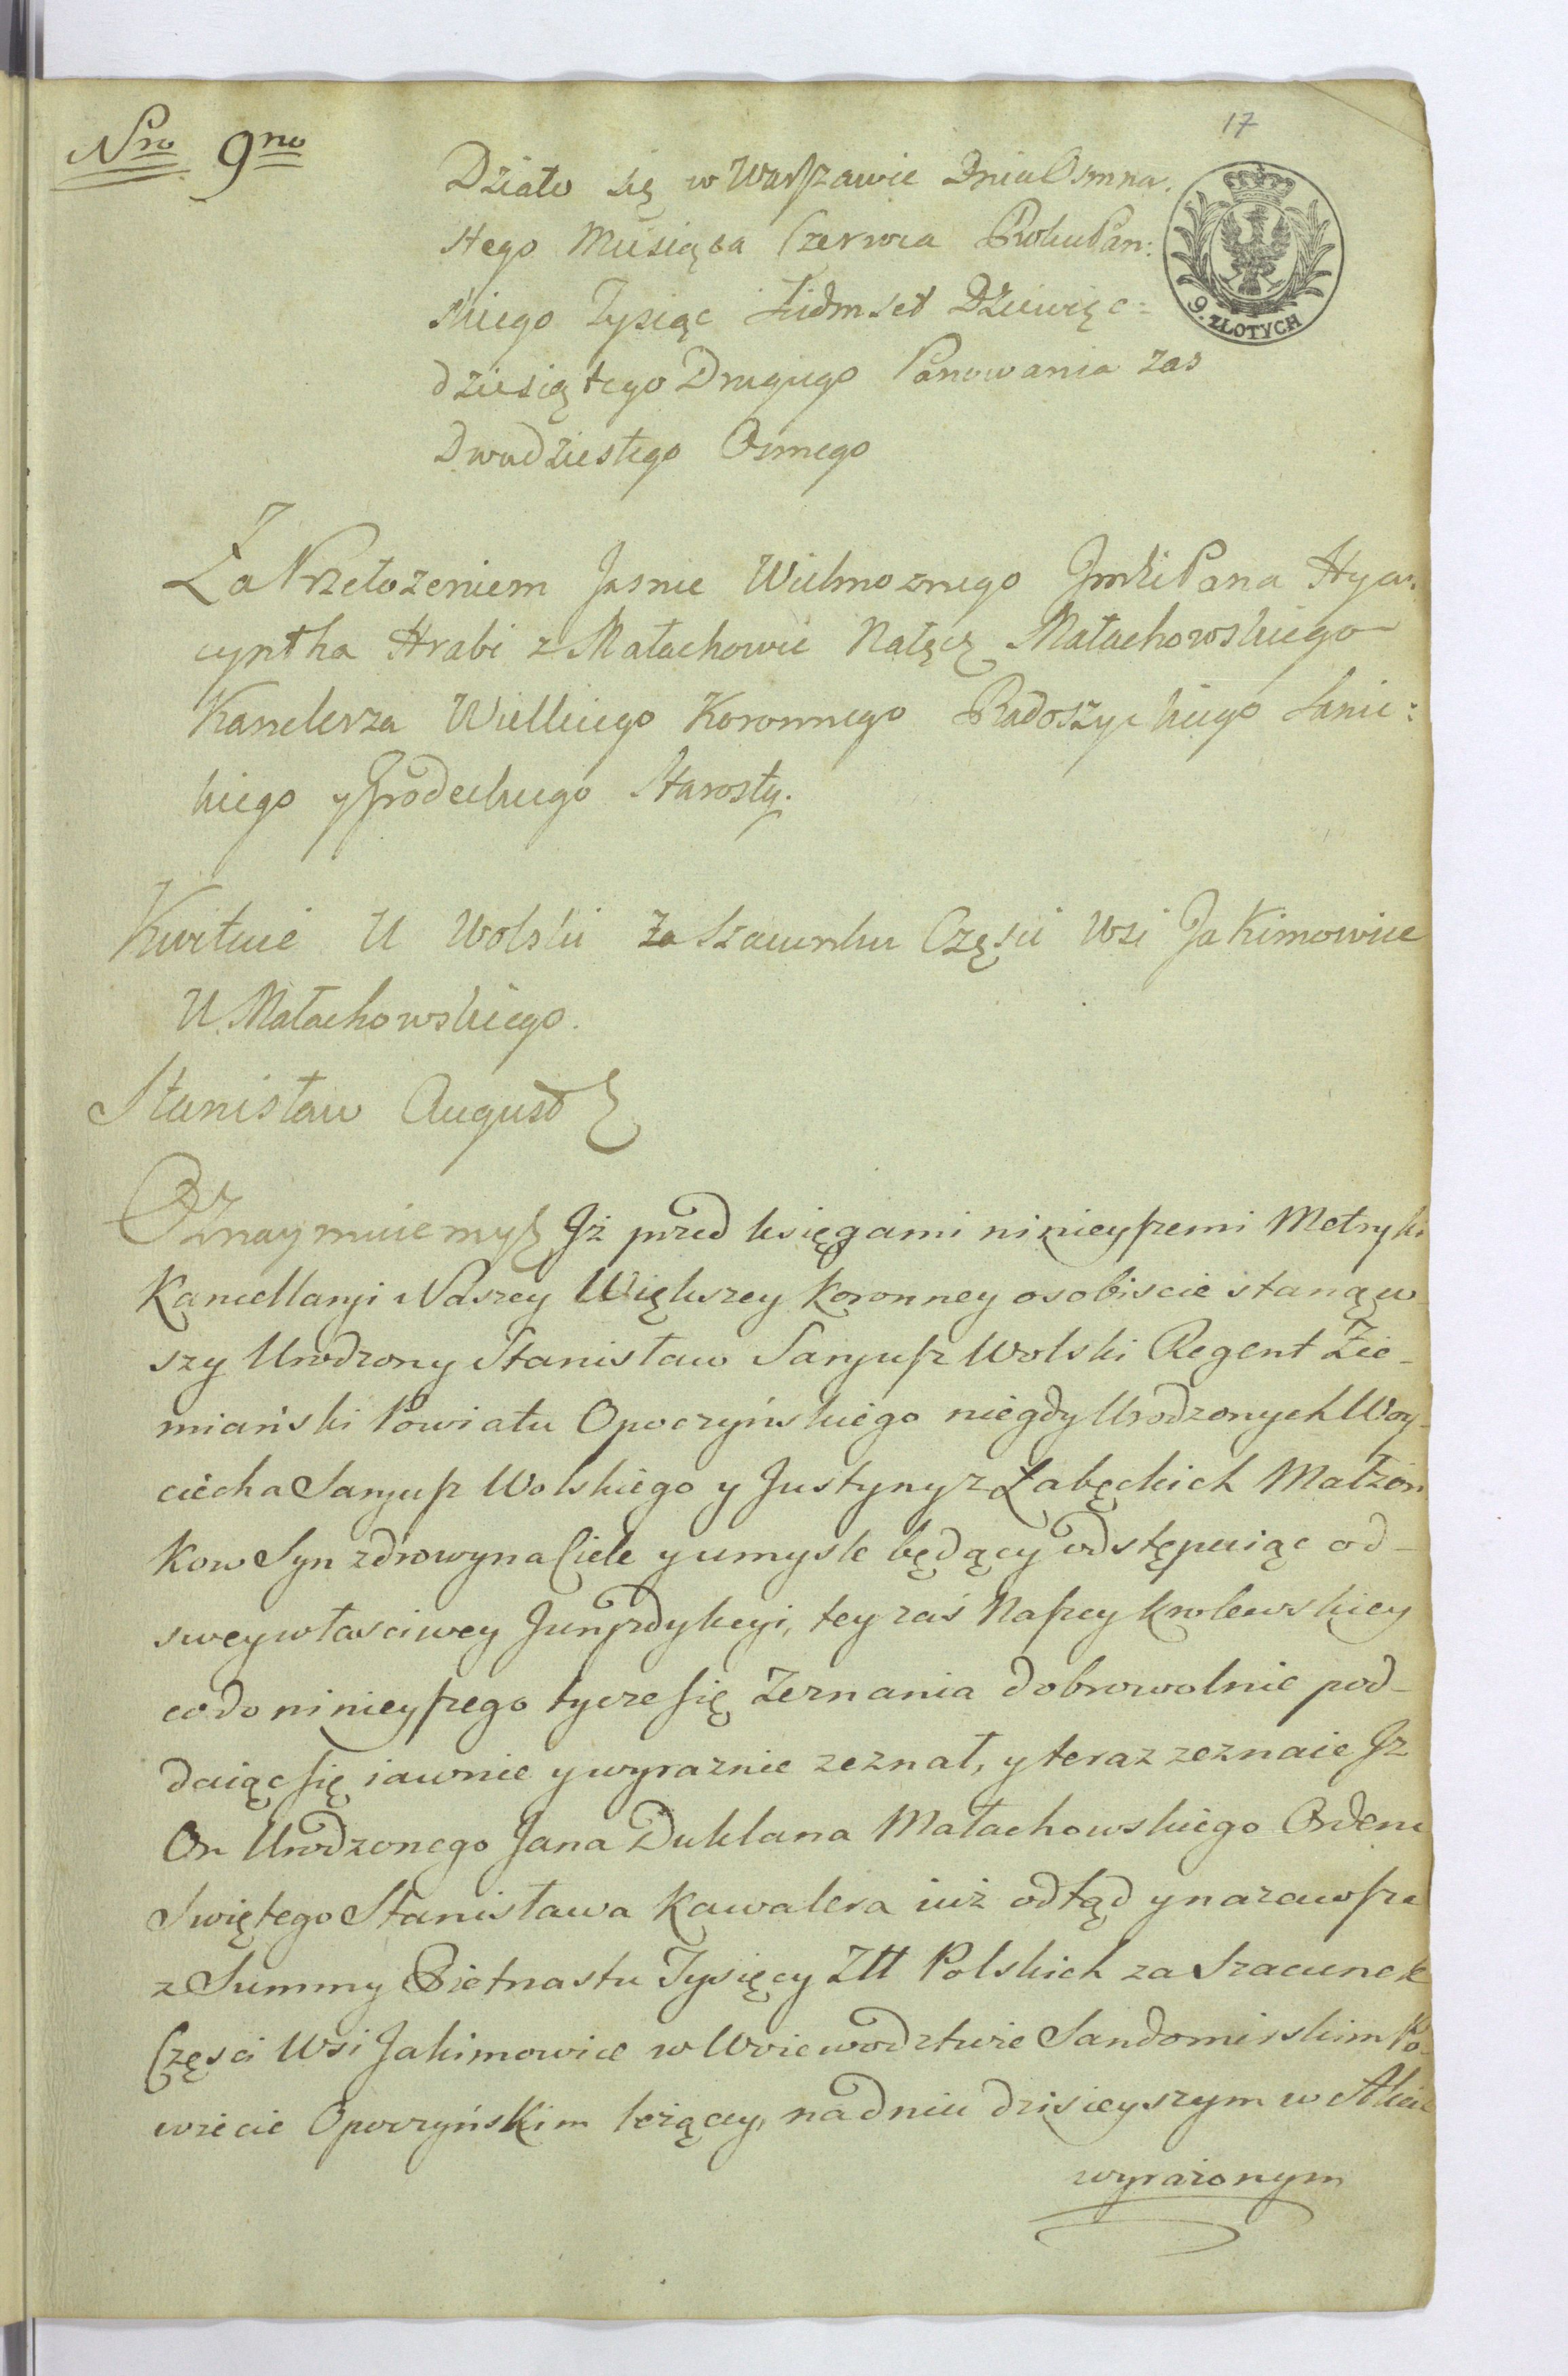 17
Nro 9no
Działo się w Warszawie Dnia Osmna:
stego Miesiąca Czerwca Roku Pań:
skiego Tysiąc Siedmset Dziewięć=
dziesiątego Drugiego Panowania zas
Dwudziestego Osmego
9. ZŁOTYCH
Za Przełożeniem Jasnie Wielmoznego Jmści Pana Hya:
cyntha Hrabi z Małachowic Nałęcz Małachowskiego
Kanclerza Wielkiego Koronnego Radoszyckiego Sanic:
kiego y Grodeckiego Starosty.
Kwituie U Wolski za Szacunku Części Wsi Jakimowice
U Małachowskiego.
Stanisław August
Oznaymuiemy Jż przed księgami ninieyszemi Metryki
Kancellaryi Naszey Większey Koronney osobiscie stanąw-
szy Urodzony Stanisław Saryusz Wolski Regent Zie-
miański Powiatu Opoczyńskiego niegdy Urodzonych Woy-
ciecha Saryusz Wolskiego y Justyny z Łabęckich Małżon
kow Syn zdrowy na Ciele y umysle będący odstępuiąc od-
swey własciwey Juryzdykcyi, tey zaś Naszey krolewskiey
co do ninieyszego tycze się Zeznania dobrowolnie pod-
daiąc się iawnie y wyraznie zeznał, y teraz zeznaie Jz
On Urodzonego Jana Duklana Małachowskiego Orderu
Swiętego Stanisława Kawalera iuż odtąd y na zawsze
z Summy Pietnastu Tysięcy Złł Polskich za Szacunek
Częsci Wsi Jakimowice w Woiewodztwie Sandomirskim Po-
wiecie Opoczyńskim leżącey, na dniu dzisieyszym w Akcie
wyrażonym